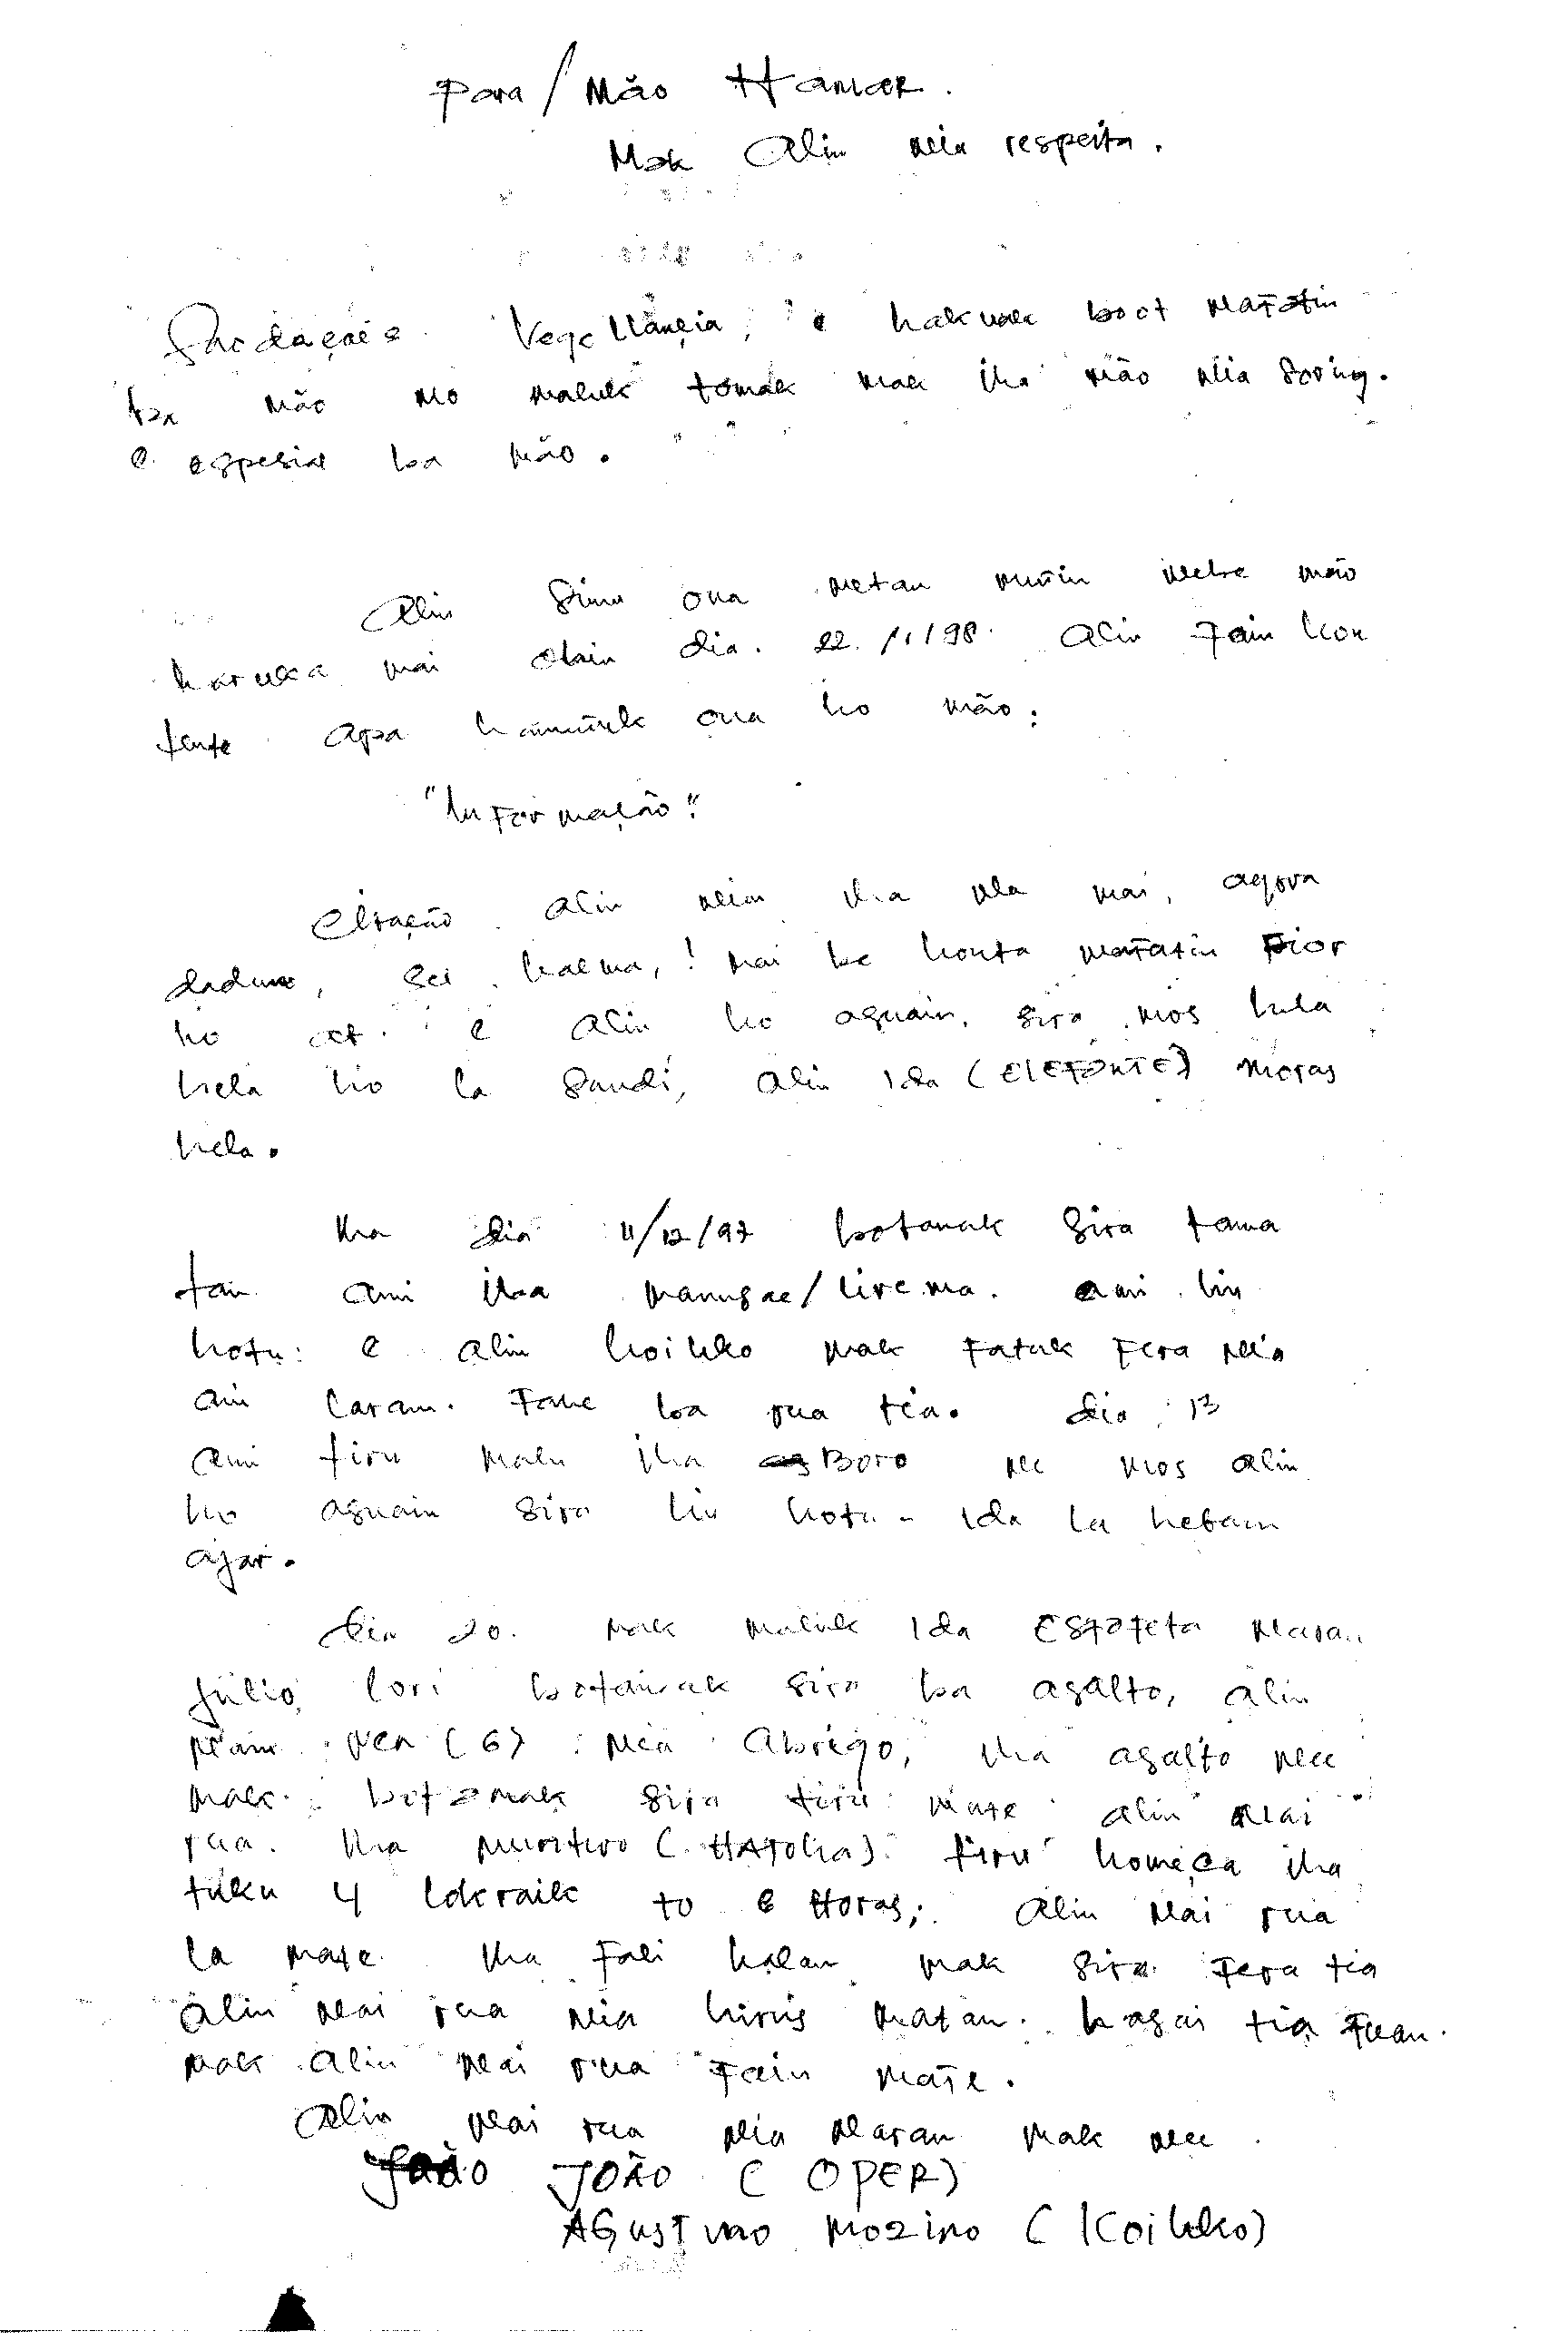 Para / Mão Hamar.
Mak Alin nia respeita.
Saodaçois Vegellançia, e hakuak boot matatin
ba mão no maluk tomak mak iha mão nia sorin.
e espesial ba mão.
Alin simu ona netan murin nebe mão
haruka mai dain dia. 22. /1/98. Alin fain kon
tente apa hamutuk ona ho mão:
"Informação".
alin nian iha ne mai, agora
dadune, sei halma, ! mai be konta matatin pior
ho at. e alin ho asuain sira mos hela
hela ho la saudi, alin ida (ELEFANTE) moras
hela.
Iha dia 11/12/97 botanak sira tama
tan ami iha manusae/lirema. ami liu
hotu: e alin koikko mak fatuk fera nia
ain laran. fahe ba rua tia. dia 13
ami tiru malu iha Boro ne mos alin
ho asuain sira liu hotu. ida la hetan
ajar.
dia 20. mak maluk ida Estafeta naran
Júlio, lori botanak sira ba asalto, alin
nain nen (6) nia abrigo, iha asalto nee
mak botanak sira tiru mate alin nai
rua. Iha (HATOLIA). tiru homeça iha
tuku 4 lokraik to 6 Horas; alin nai rua
la mate. Iha fali kalan mak sira fera tia
alin nai rua nia hirus matan. hasai tia fuan.
mak alin nai rua fain mate.
Alin nai rua nia naran mak nee
JOÃO (OPER)
AGUSTINO MOZINO (KOIKKO)